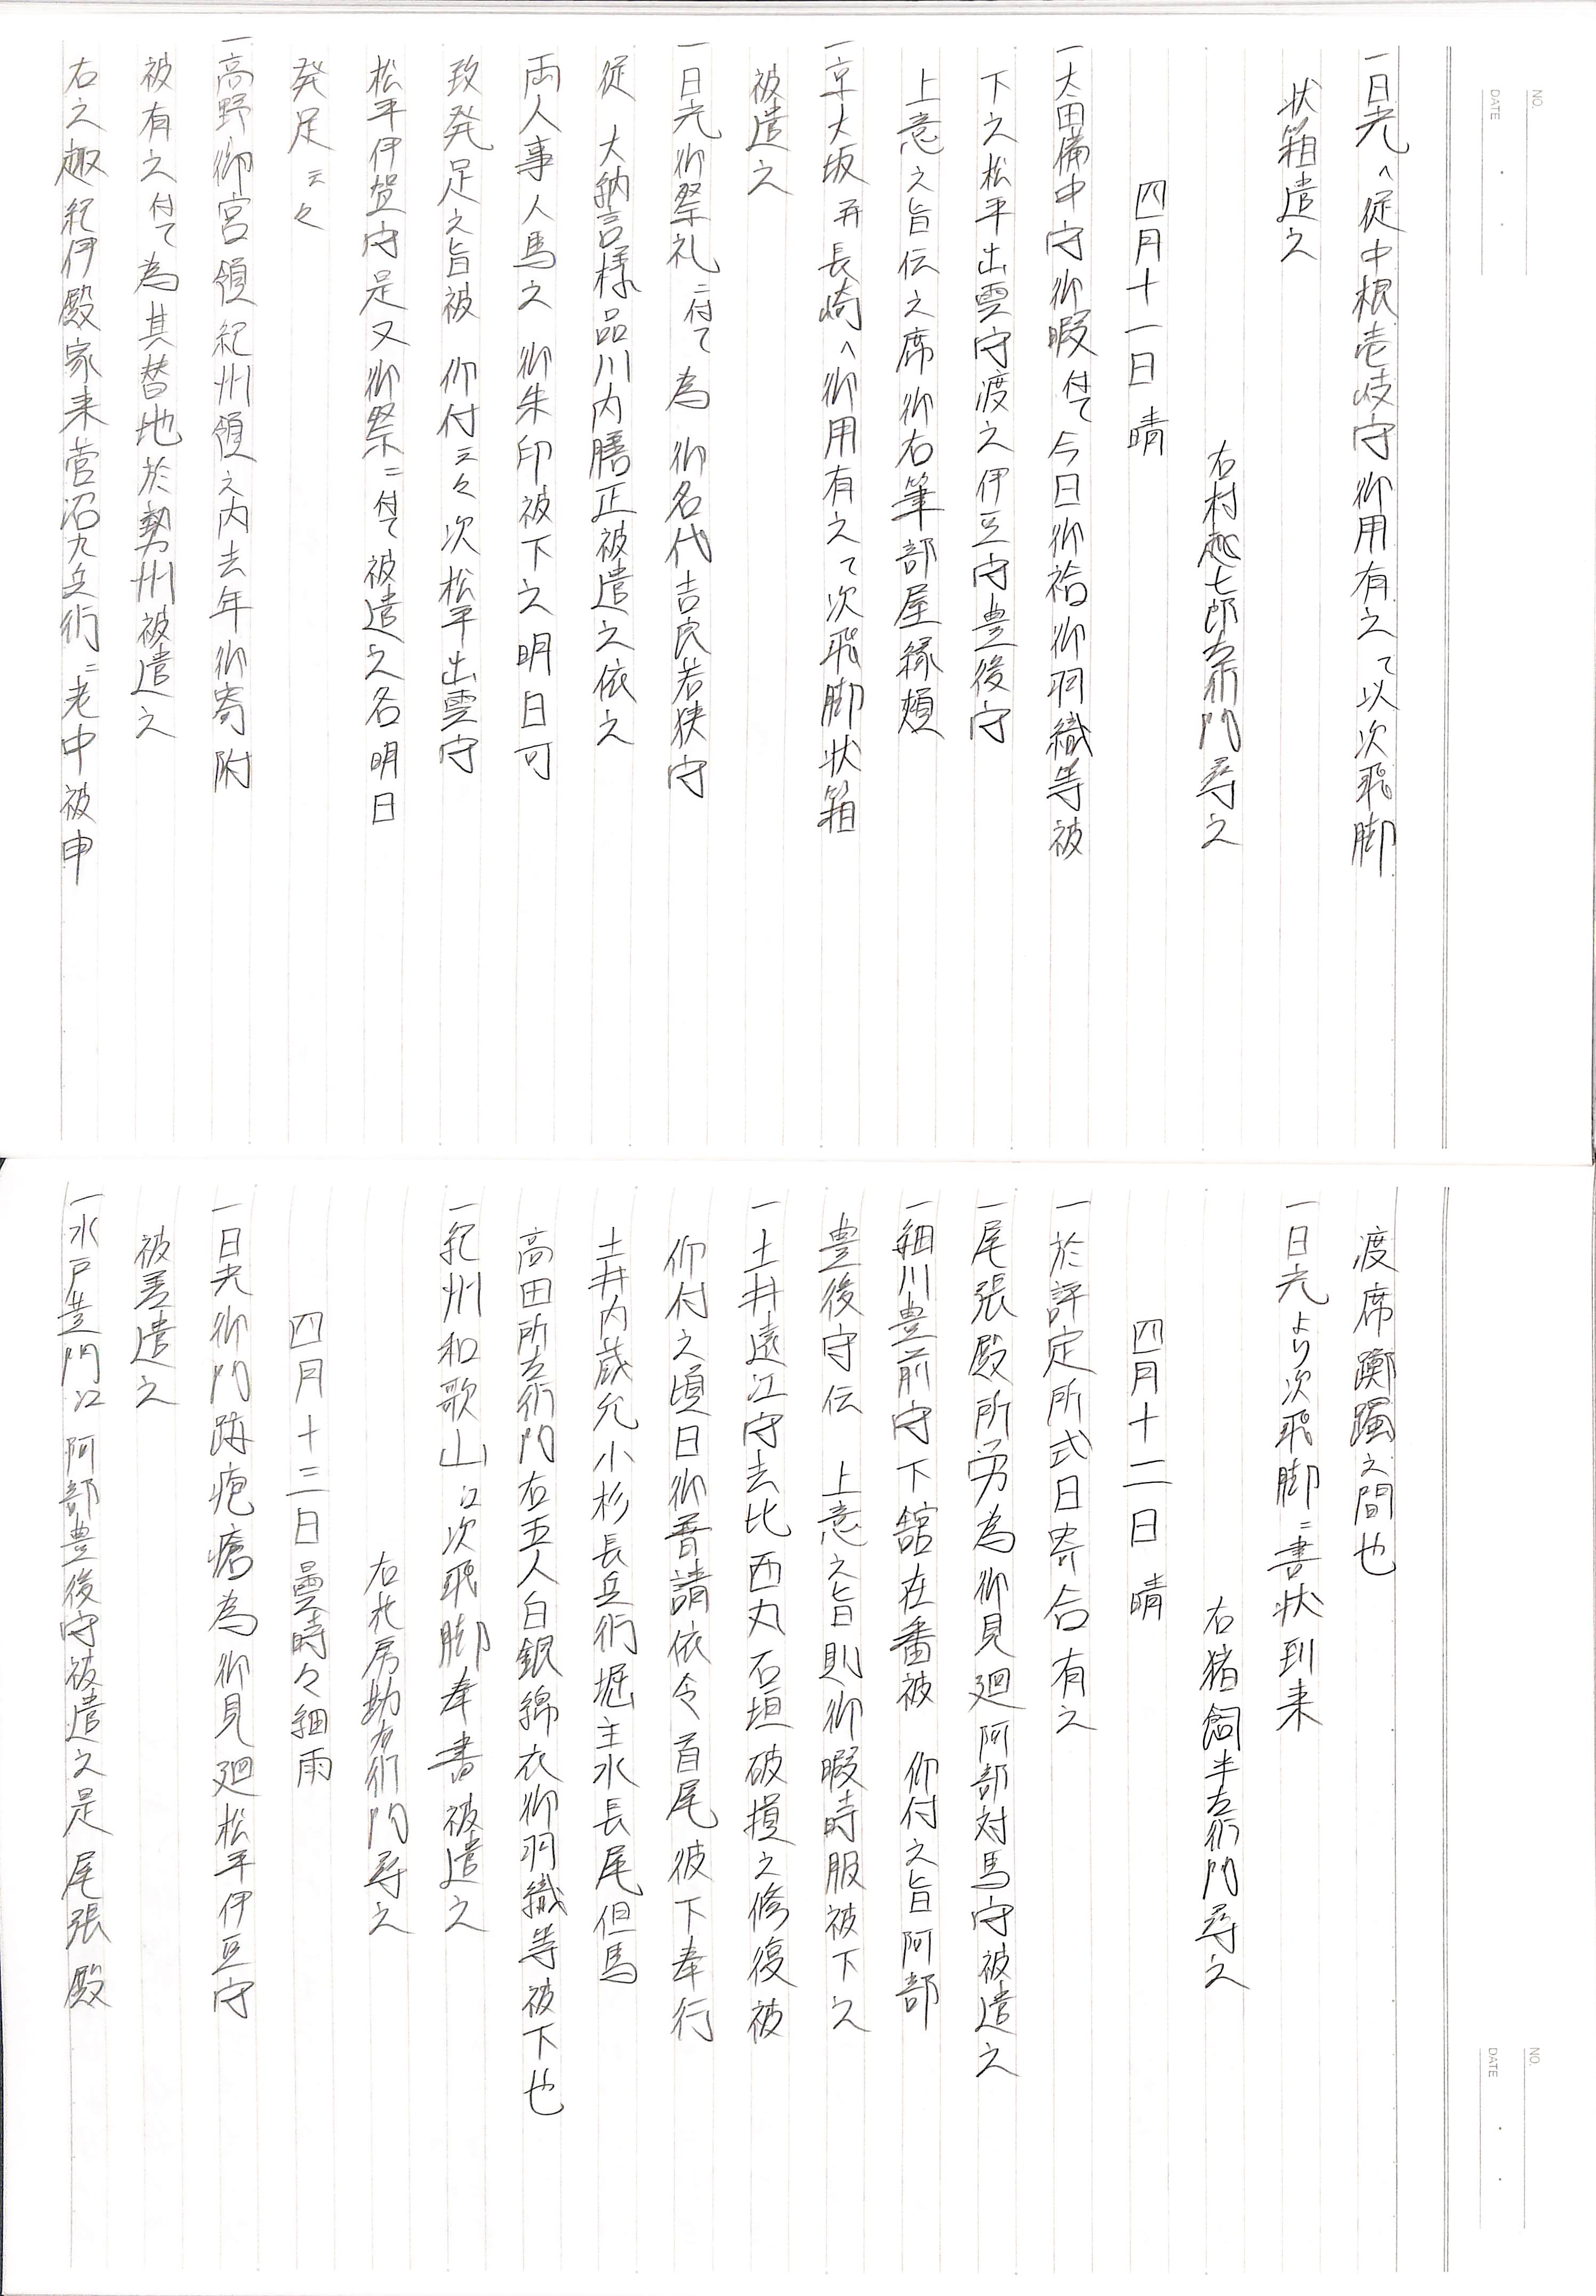 NO.
DATE
一日光へ従中根壱岐守御用有之て以次飛脚
状箱遣之
右村越七郎左衛門尋之
四月十一日 晴
一太田備中守御暇付て今日御袷御羽織等被
下之松平出雲守渡之伊豆守豊後守
上意之旨伝之席御右筆部屋縁頬
一京大坂并長崎へ御用有之て次飛脚状箱
被遣之
一日光御祭礼ニ付て為 御名代吉良若狭守
従 大納言様品川内膳正被遣之依之
両人事人馬之 御朱印被下之明日可
致発足之旨被 仰付云々次松平出雲守
松平伊賀守是又御祭ニ付て被遣之各明日
発足云々
一高野御宮領紀州領之内去年御寄附
被有之付て為其替地於勢州被遣之
右之趣紀伊殿家来菅沼九兵衛ニ老中被申
渡席躑躅之間也
一日光より次飛脚ニ書状到来
右猪飼半左衛門尋之
四月十二日 晴
一於評定所式日寄合有之
一尾張殿所労為御見廻阿部対馬守被遣之
一細川豊前守下舘在番被 仰付之旨阿部
豊後守伝 上意之旨則御暇時服被下之
一土井遠江守去比西丸石垣破損之修復被
仰付之頃日御普請依令首尾彼下奉行
土井内蔵允小杉長兵衛堀主水長尾但馬
高田所左衛門右五人白銀綿衣御羽織等被下也
一紀州和歌山江次飛脚奉書被遣之
右北房勘右衛門尋之
四月十三日曇時々細雨
一日光御門跡疱瘡為御見廻松平伊豆守
被差遣之
一水戸黄門江 阿部豊後守被遣之是 尾張殿
NO.
DATE